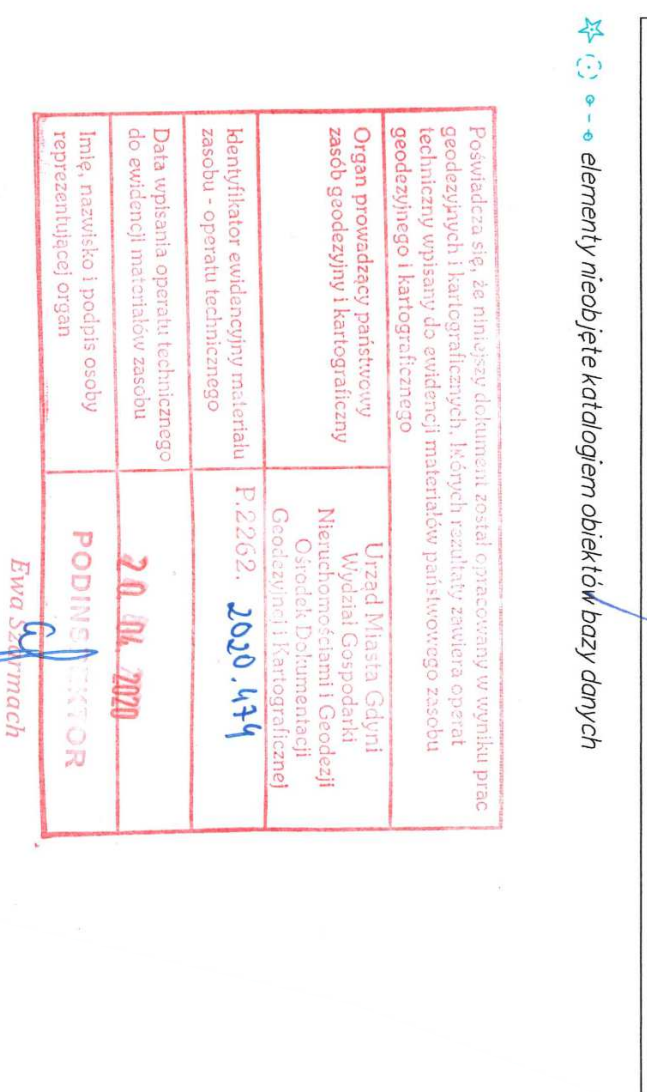 elementy nieobjęte katalogiem obiektów bazy danych
Poświadcza się, że niniejszy dokument został opracowany w wyniku prac
geodezyjnych i kartograficznych, których rezultaty zawiera operat
techniczny wpisany do ewidencji materiałów państwowego zasobu
geodezyjnego i kartograficznego
Organ prowadzący państwowy
zasób geodezyjny i kartograficzny
Urząd Miasta Gdyni
Wydział Gospodarki
Nieruchomościami i Geodezji
Ośrodek Dokumentacji
Geodezyjnej i Kartograficznej
Identyfikator ewidencyjny materiału
zasobu - operatu technicznego
P.2262. 2020.474
Data wpisania operatu technicznego
do ewidencji materiałów zasobu
20. 04. 2020
Imię, nazwisko i podpis osoby
reprezentującej organ
PODINSPEKTOR
Ewa Szarmach